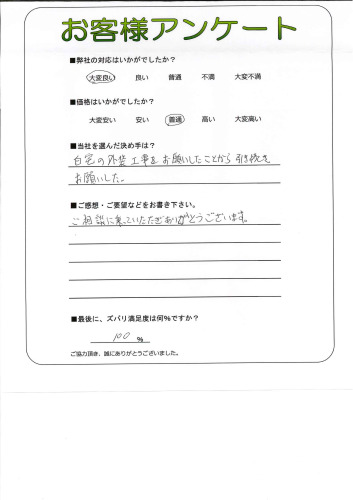 お客様アンケート
■弊社の対応はいかがでしたか?
大変良い 良い 普通 不満 大変不満
■価格はいかがでしたか?
大変安い 安い 普通 高い 大変高い
■当社を選んだ決め手は?
自宅の外装工事をお願いしたことから引き続き
お願いした。
■ご感想・ご要望などをお書き下さい。
ご相談に乗っていただきありがとうございます。
■最後に、ズバリ満足度は何%ですか?
100 %
ご協力頂き、誠にありがとうございました。